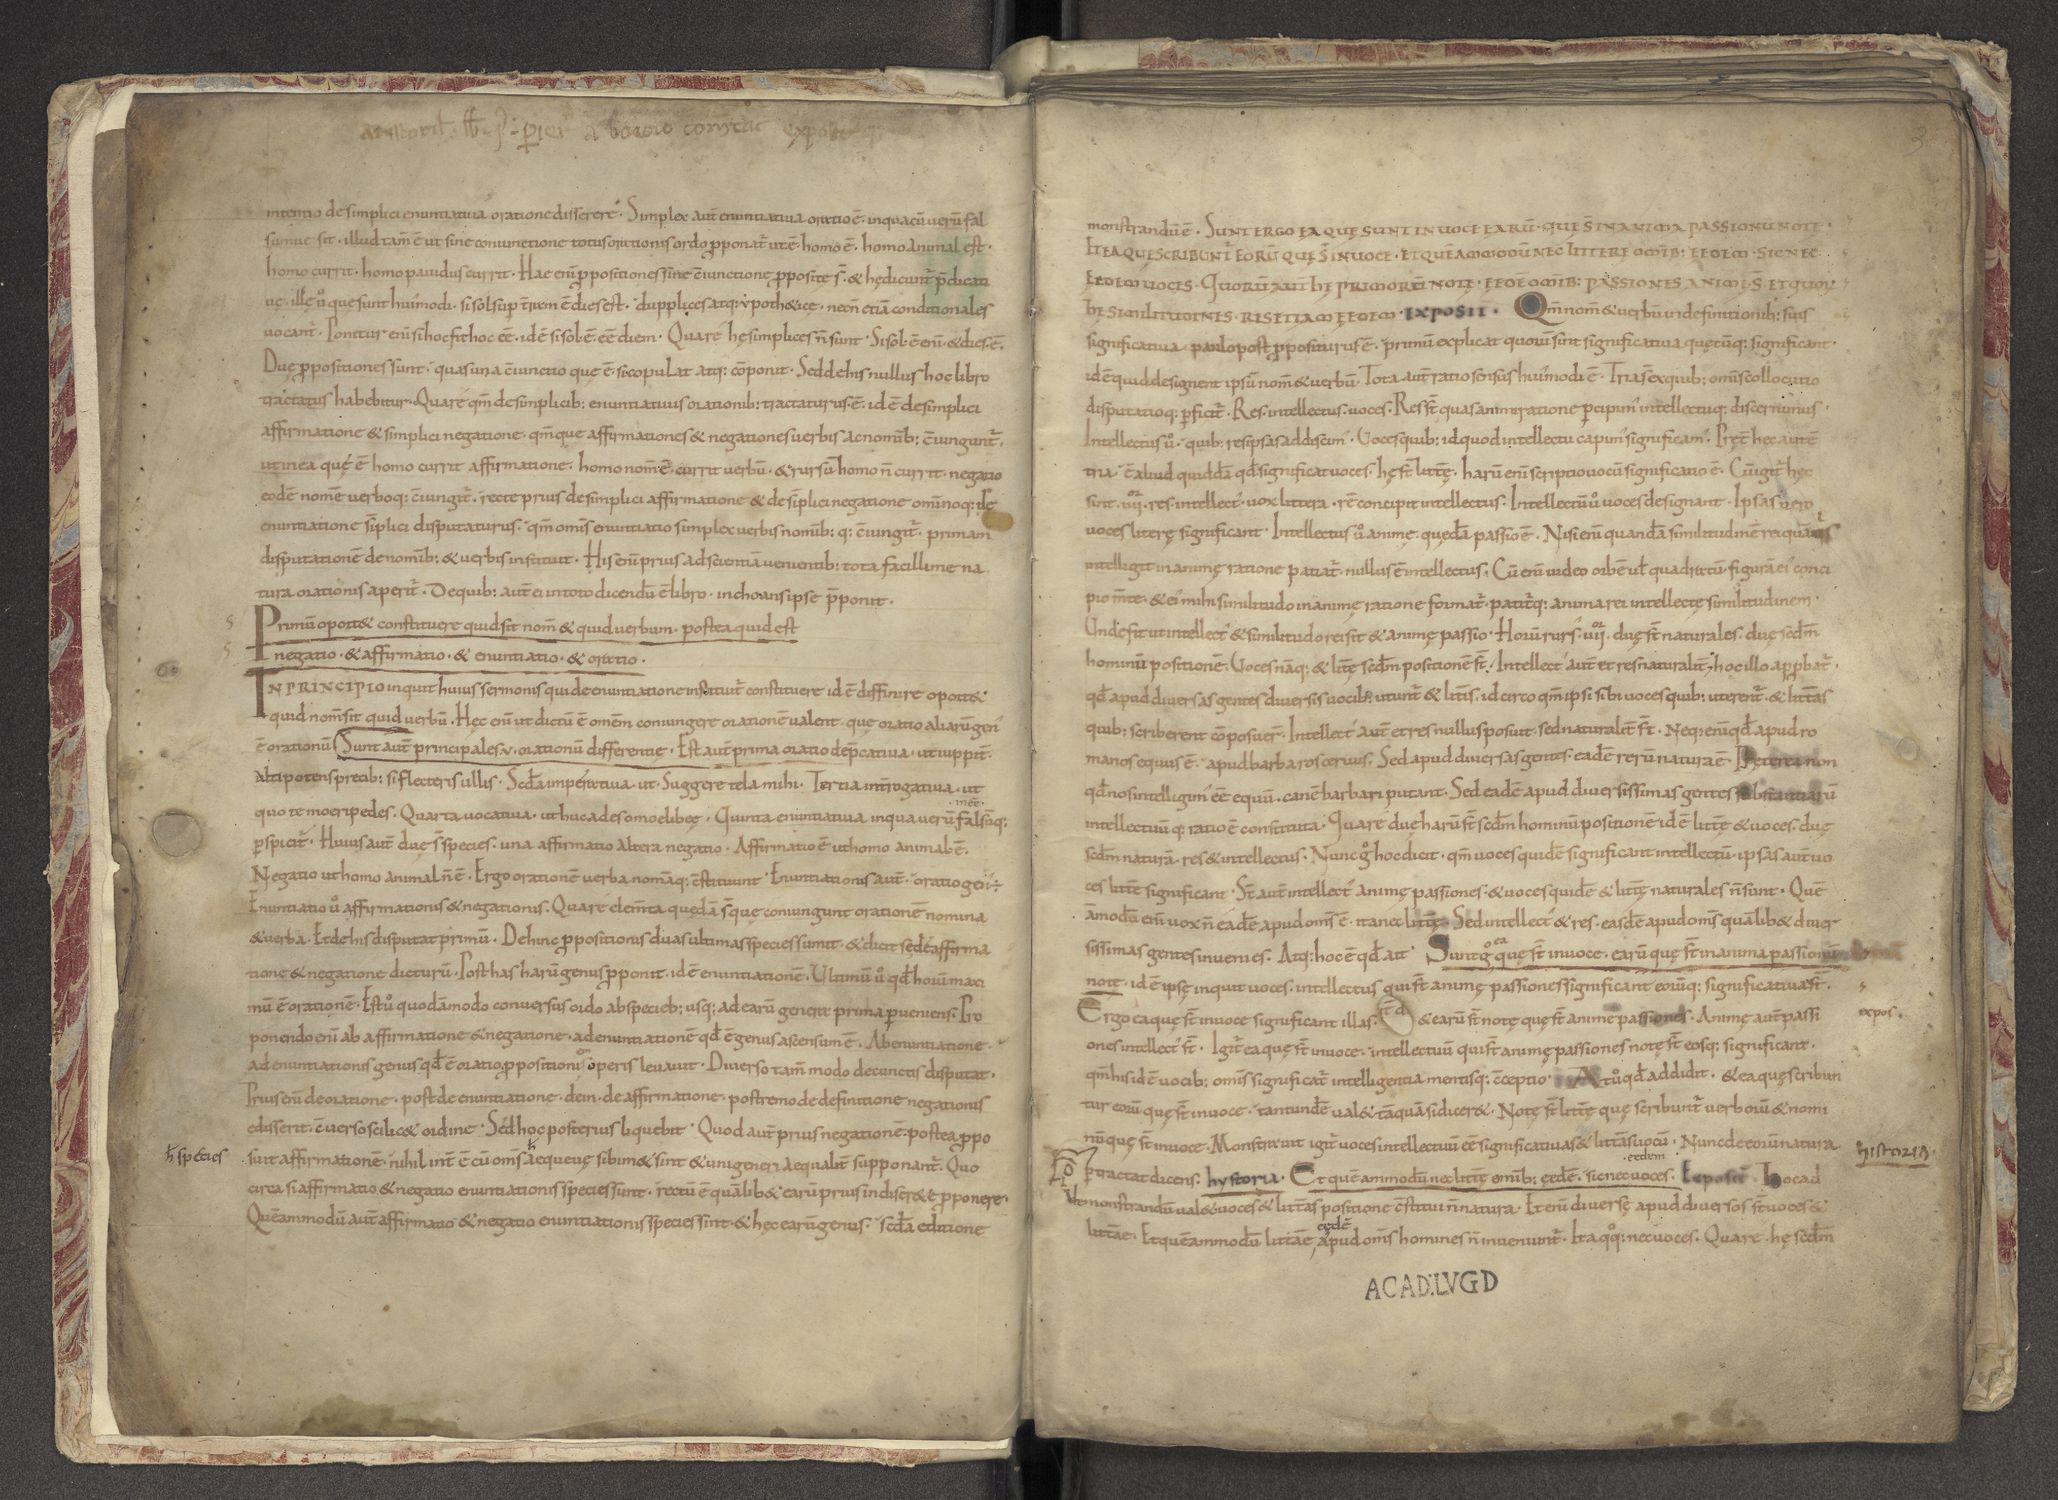 intentio de simplici enuntiatiua oratione disserere. Simplex aut̄ enuntiatiua oratio ē. inqua cū uerū fal
sumue sit. illud tam̄ ē ut sine coniunctione totus orationis ordo p̄ponat̄ ut ē. homo ē. homo animal est.
homo currit. homo pauidus currit. Hae enī p̄positiones sine c̄iunctione p̄posite s̄. & hę dicunt̄ p̄dicati
uę. illę ů que sunt hui'modi. si sol sup t̄ram ē dies est. dupplices atq: ypoth&icę. necn̄ etiā conditionales
uocant̄. Ponitur enī si hoc fit hoc ēē. id ē si sol ē. ēē diem. Quare hę simplices n̄ sunt. Si sol ē enī & dies ē.
Duę p̄positiones sunt. quas una c̄iunctio quę ē. si copulat atq: cōponit. Sed de his nullus hoc libro
tractatus habebitur. Quare qm̄ de simplicib: enuntiatiuis orationib: tractaturus ē. id ē de simplici
affirmatione & simplici negatione. qm̄que affirmationes & negationes uerbis ac nomīb: c̄iungunt̄.
ut in ea quę ē homo currit affirmatione. homo nom̄ ē. currit uerbū. & rursū homo n̄ currit. negatio
eodē nomē uerboq: c̄iungit̄. recte prius de simplici affirmatione & de sīplici negatione omīnoq: de
enuntiatione sīplici disputaturus. qm̄ omīs enuntiatio simplex uerbis nomīb: q: c̄iungit̄. primam
disputationē de nomīb: & uerbis instituit. His enī prius ad scientiā uenientib: tota facillime na
tura orationis aperit̄. De quib: aut̄ ei in toto dicendū ē libro. inchoans ipse p̄ponit.
Primū oport& constituere quid sit nom̄ & quid uerbum. postea quid est
negatio. & affirmatio. & enuntiatio. & oratio.
IN PRINCIPIO inquit huius sermonis qui de enuntiatione instituit̄ constituere id ē diffinire oport&
quid nom̄ sit quid uerbū. Hęc enī ut dictū ē omēm coniungere orationē ualent. quę oratio aliarū gen'
ē orationū. Sunt aut̄ principales .v. orationū differentię. Est aut̄ prima oratio dep̄catiua. ut iuppit̄
altipotens precib: si flecteris ullis. Sc̄da imperatiua. ut Suggere tela mihi. Tertia int̄rogatiua. ut
quo te moeri pedes. Quarta uocatiua. ut huc ades o moelibęę. Quinta enuntiatiua in qua uerū falsūq:
p̄spicit̄. Huius aut̄ duę s̄ species. una affirmatio altera negatio. Affirmatio ē ut homo animal ē.
Negatio ut homo animal n̄ ē. Ergo orationē uerba nomāq: c̄stituunt. Enuntiationis aut̄. oratio gen' ÷
Enuntiatio ů affirmationis & negationis. Quare elem̄ta quędā s̄ que coniungunt orationē nomina
& uerba. Et de his disputat primū. Dehinc p̄positionis duas ultimas species sumit. & dicit se de affirma
tione & negatione dicturū. Post has harū genus p̄ponit. id ē enuntiationē. Ultimū ů qd̄ horū maxi
mū ē orationē. Est ů quodāmodo conuersus ordo ab specieb: usq: ad earū genere prima p̄ueniens. Pro
ponendo enī ab affirmatione & negatione. ad enuntiationē qd̄ ē genus ascensum ē. Ab enuntiatione.
ad enuntiationis genus qd̄ ē oratio p̄positioni' operis leuauit. Diuerso tam̄ modo de cunctis disputat.
Prius enī de oratione. post de enuntiatione. dein. de affirmatione. postremo de definitione negationis
edisserit. c̄uerso scilic& ordine. Sed hoc posterius liquebit. Quod aut̄ prius negationē. postea p̄po
h̄ species
suit affirmationē. nihil int̄ ē cū om̄s aequeuę sibim& sint & uni generi aequalit̄ supponant̄. Quo
circa si affirmatio & negatio enuntiationis species sunt. rectū ē quālib& earū prius indiscr&e p̄ponere.
Quēammodū aut̄ affirmatio & negatio enuntiationis species sint. & hęc earū genus. sc̄da editione
monstrandū ē. SUNT ERGO EA QUĘ SUNT IN UOCE EARŪ. QUE S̄ IN ANIMA PASSIONŪ NOTE.
ET EA QUE SCRIBUNT̄ EORŪ QUĘ S̄ IN UOCE. ET QUĒAMMODŪ NEC LITTERE OMIB: EEDEM. SIC NEC
EEDEM UOCES. QUORŪ AUT̄ HE PRIMORŪ NOTE. EEDE OMIB: PASSIONES ANIMĘ S̄. ET QUOR̄
HE SIMILITUDINES. RES ETIAM EEDEM. EXPOSIT. Qm̄ nom̄ & uerbū in definitionib: suis
significatiua paulo post p̄positurus ē. primū explicat quorū sint significatiua quęcūq: significant.
id ē quid designent ipsū nom̄ & uerbū. Tota aut̄ ratio sensus hui'modi ē. Tria s̄ ex quib: omīs collocutio
disputatioq: p̄ficit̄. Res. intellectus. uoces. Res s̄t quas animi ratione p̄cipim' intellectuq: discernimus.
Intellectus ů. quib: res ipsas addiscim'. Uoces quib: id quod intellectu capim' significam'. Pręt̄ hęc aut̄
tria. ē aliud quiddā qd̄ significat uoces. hę s̄t litt̄ę. harū enī scriptio uocū significatio ē. Cū igit̄ hęc
sint .iiii. res. intellect'. uox littera. rē concipit intellectus. Intellectū ů uoces designant. Ipsas uero
uoces literę significant. Intellectus ů animę quędā passio ē. Nisi enī quandā similitudinē rei quā quis
intelligit in animę ratione patiat̄. nullus ē intellectus. Cū enī uideo orbē ul̄ quadratū. figurā ei' conci
pio m̄te. & ei' mihi similitudo in animę ratione format̄. patit̄q: anima rei intellectę similitudinem.
Unde fit ut intellect' & similitudo rei sit & animę passio. Horū rurs' .iiii. duę s̄t naturales. duę sc̄dm̄
hominū positionē. Uoces nāq: & litt̄ę sc̄dm̄ positionē s̄t. Intellect' aut̄ et res naturalit̄. hoc illo app̄bat̄.
qd̄ apud diuersas gentes diuersis uocib: utunt̄ & litt̄is. idcirco qm̄ ipsi sibi uoces quib: uterent̄. & litt̄as
quib: scriberent cōposuer̄. Intellect' aut̄ et res nullus posuit. sed naturalit̄ s̄t. Neq: enī qd̄ apud ro
manos equus ē. apud barbaros ceruus. Sed apud diuersas gentes. eadē rerū natura ē. Preterea non
qd̄ nos intelligim' ēē equū. canē barbari putant. Sed eadē apud diuersissimas gentes substantiarū
intellectuū q: ratio ē constituta. Quare duę harū s̄t sc̄dm̄ hominū positionē id ē litt̄ę & uoces. duę
sc̄dm̄ naturā. res & intellectus. Nunc g̊ hoc dicit. qm̄ uoces quidē significant intellectū. ipsas aut̄ uo
ces litt̄ę significant. S̄t aut̄ intellect' animę passiones. & uoces quidē & litt̄ę naturales n̄ sunt. Quē
āmodū enī uox n̄ eadē apud om̄s ē. ita nec litt̄ę. Sed intellect' & res. easdē apud om̄s quālib& diuer
sissimas gentes inuenies. Atq: hoc ē qd̄ ait. Sunt g̊ ea quę s̄t in uoce. earū quę s̄t in anima passionū
notę. id ē ipsę inquit uoces. intellectus qui s̄t animę passiones significant eorūq: significatiua s̄t.
Ergo ea que s̄t in uoce significant illas. & earū s̄t notę quę s̄t animę passiones. Animę aut̄ passi
expos.
ones intellect' s̄t. Igit̄ ea quę s̄t in uoce. intellectuū qui s̄t animę passiones notę s̄t eosq: significant.
qm̄ his id ē uocib: omīs significat̄ intelligentia mentisq: c̄ceptio. At ů qd̄ addidit. & ea quę scribun
tur eorū quę s̄t in uoce. tantundē ual& tāquā si dicer&. Notę s̄t litt̄ę quę scribunt̄ uerborū & nomi
nū quę s̄t in uoce. Monstrauit igit̄ uoces intellectuū ēē significatiuas & litt̄as uocū. Nunc de eorū natura
historia.
p̄tractat dicens. hystoria. Et quēammodū nec litt̄ę omīb: eędē. sic nec uoces. Exposit̄. Hoc ad
demonstrandū ual& uoces & litt̄as positione c̄stitui n̄ natura. Et enī diuersę apud diuersos s̄t uoces &
litt̄ae. Et quēammodū litt̄ae eędē apud om̄s homines n̄ inueniunt̄. Ita q̊q: nec uoces. Quare. hę sc̄dm̄
ACAD. LVGD